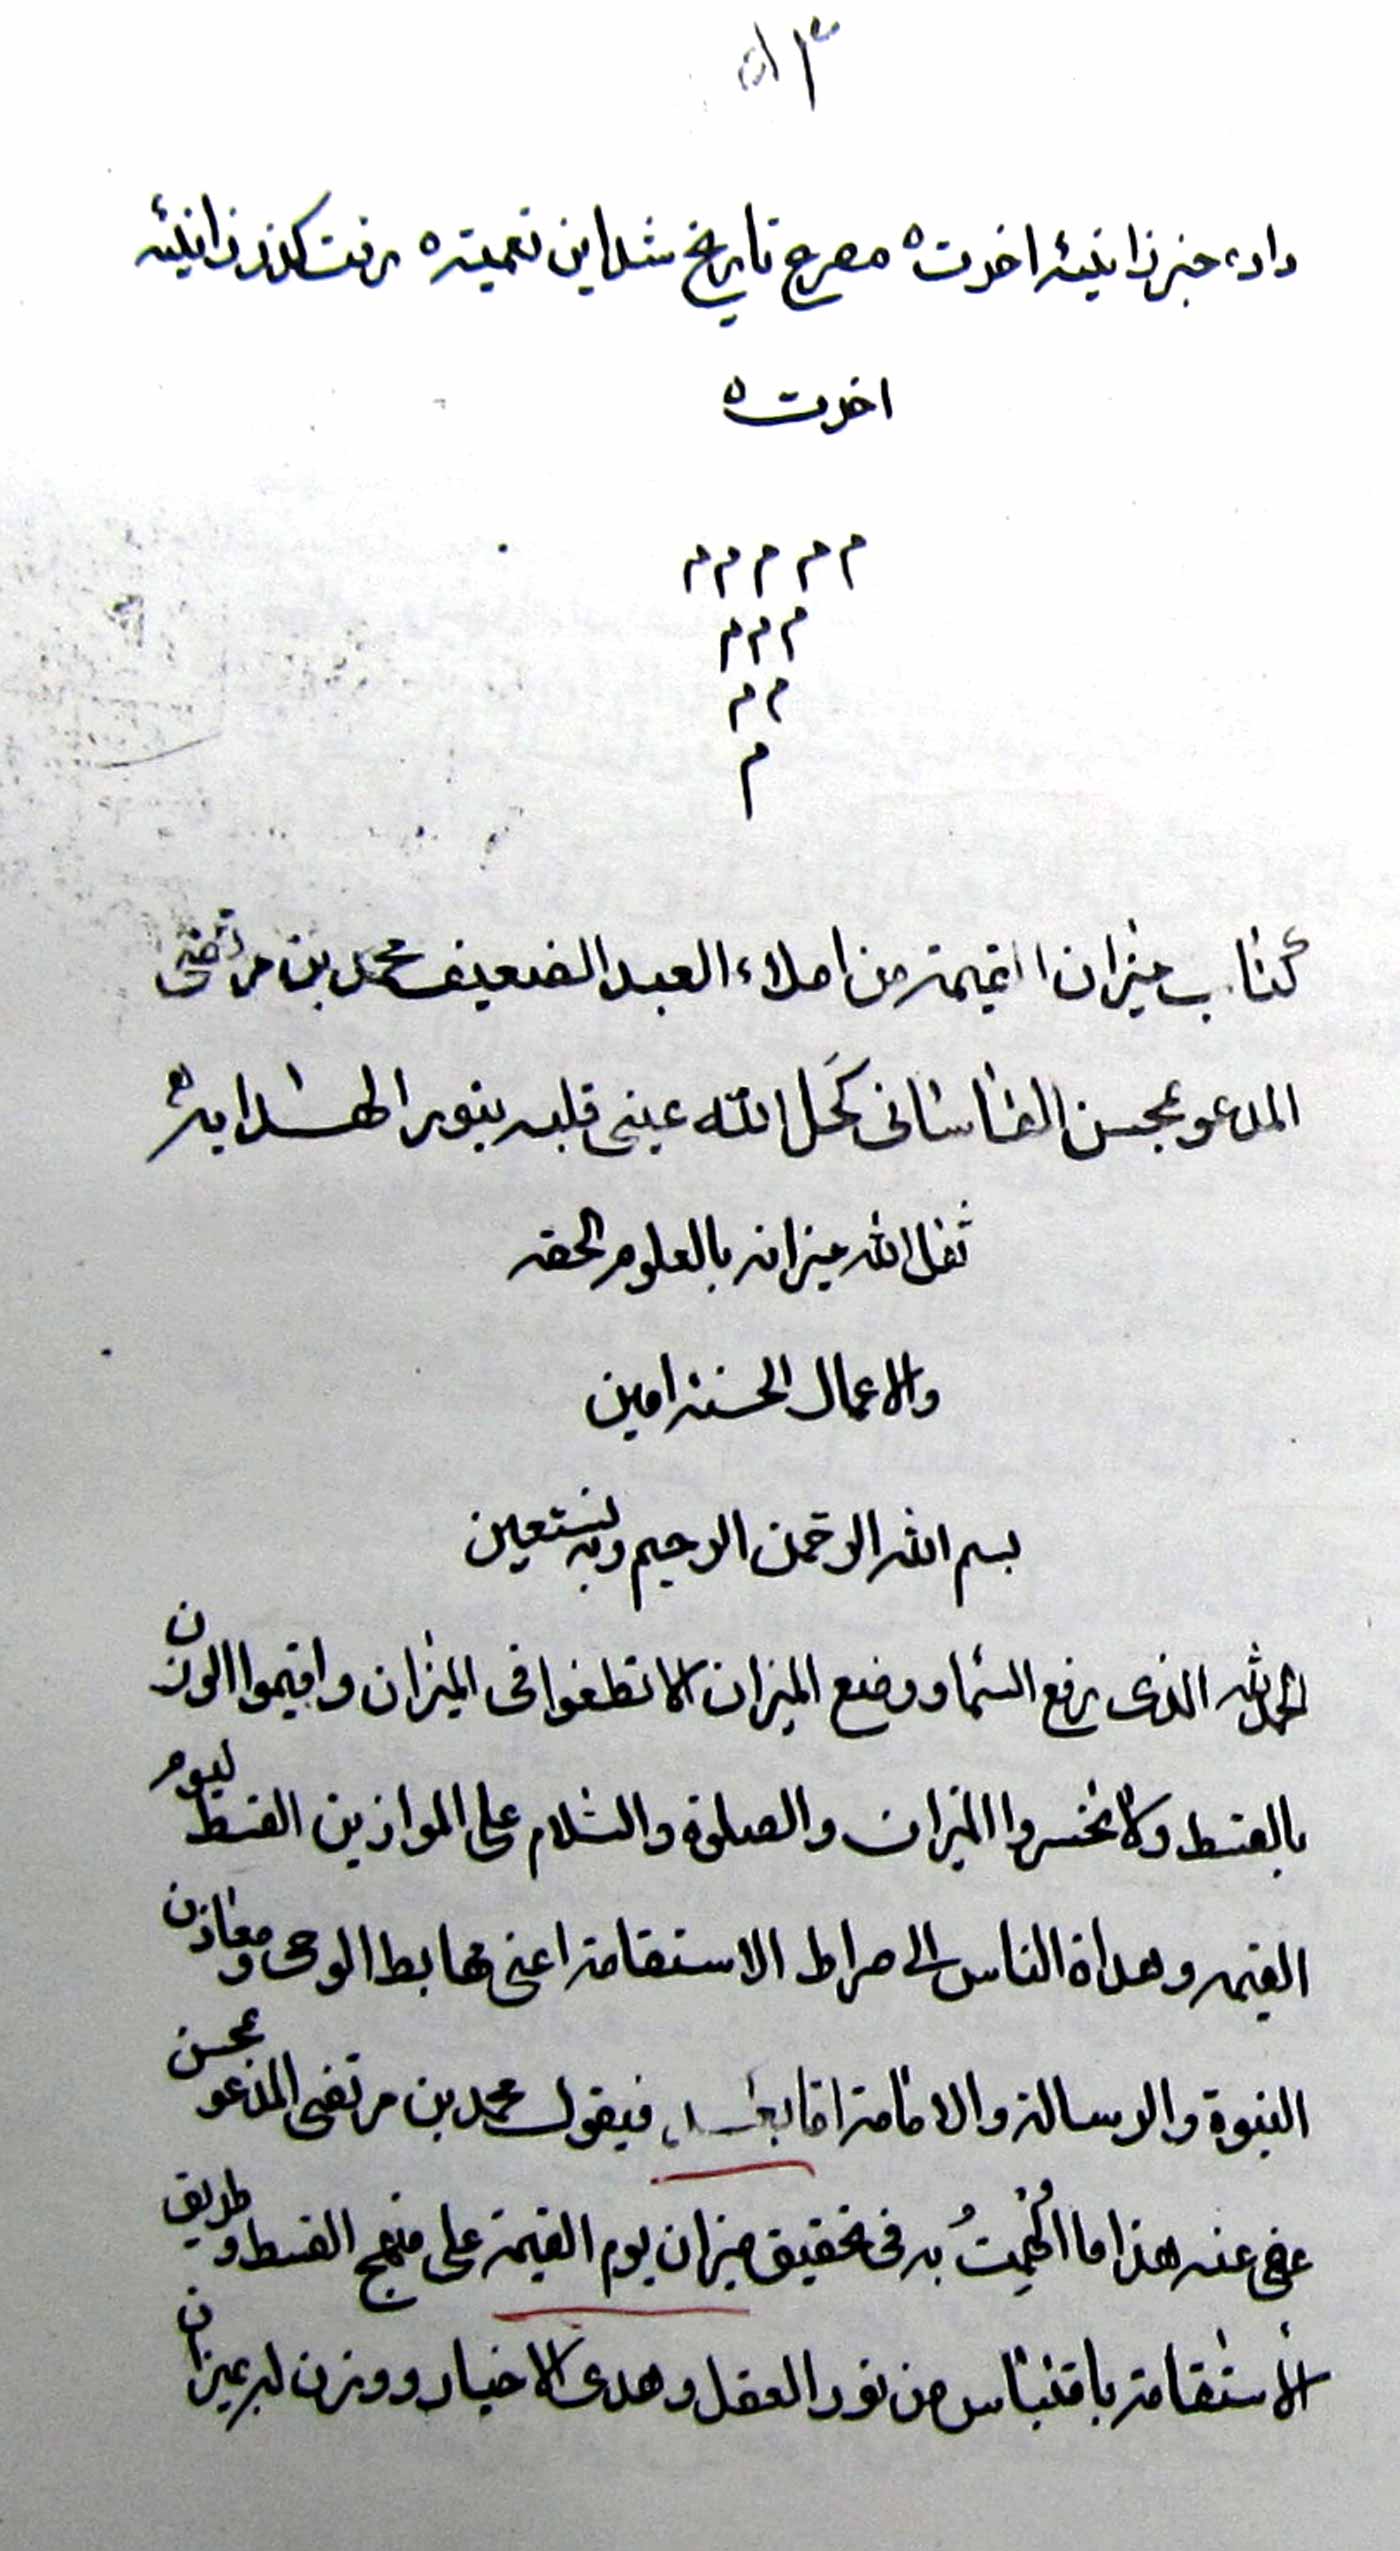 داد، خبر زانیئه اخرت ه مصرع تاریخ شد این تعمیته رفت کذر زانیئه
اخرت ه
م م م م م
م م م
م م
م
كتاب ميزان القيمة من املاء العبد الضعيف محمد بن مرتضى
المدعو بمحسن القاساني كحل الله عيني قلبه بنور الهداية
ثقل الله ميزانه بالعلوم الحقه
والاعمال الحسنة امين
بسم الله الرحمن الرحيم وبه نستعين
الحمد لله الذى رفع السما ووضع الميزان الا تطغوا فى الميزان واقيموا الوزن
بالقسط ولا تخسروا الميزان والصلوة والسلام على الموازين القسط ليوم
القيمه وهداة الناس الى صراط الاستقامة اعنى مهابط الوحى ومخازن
النبوة والرسالة والامامة اما بعد، فيقول محمد بن مرتضى المدعو بمحسن
عفى عنه هذا ما الهمت به فى تحقيق ميزان يوم القيمة على منهج القسط وطريق
الاستقامة باقتباس من نور العقل وهدى الاخيار ووزن لبر بميزان